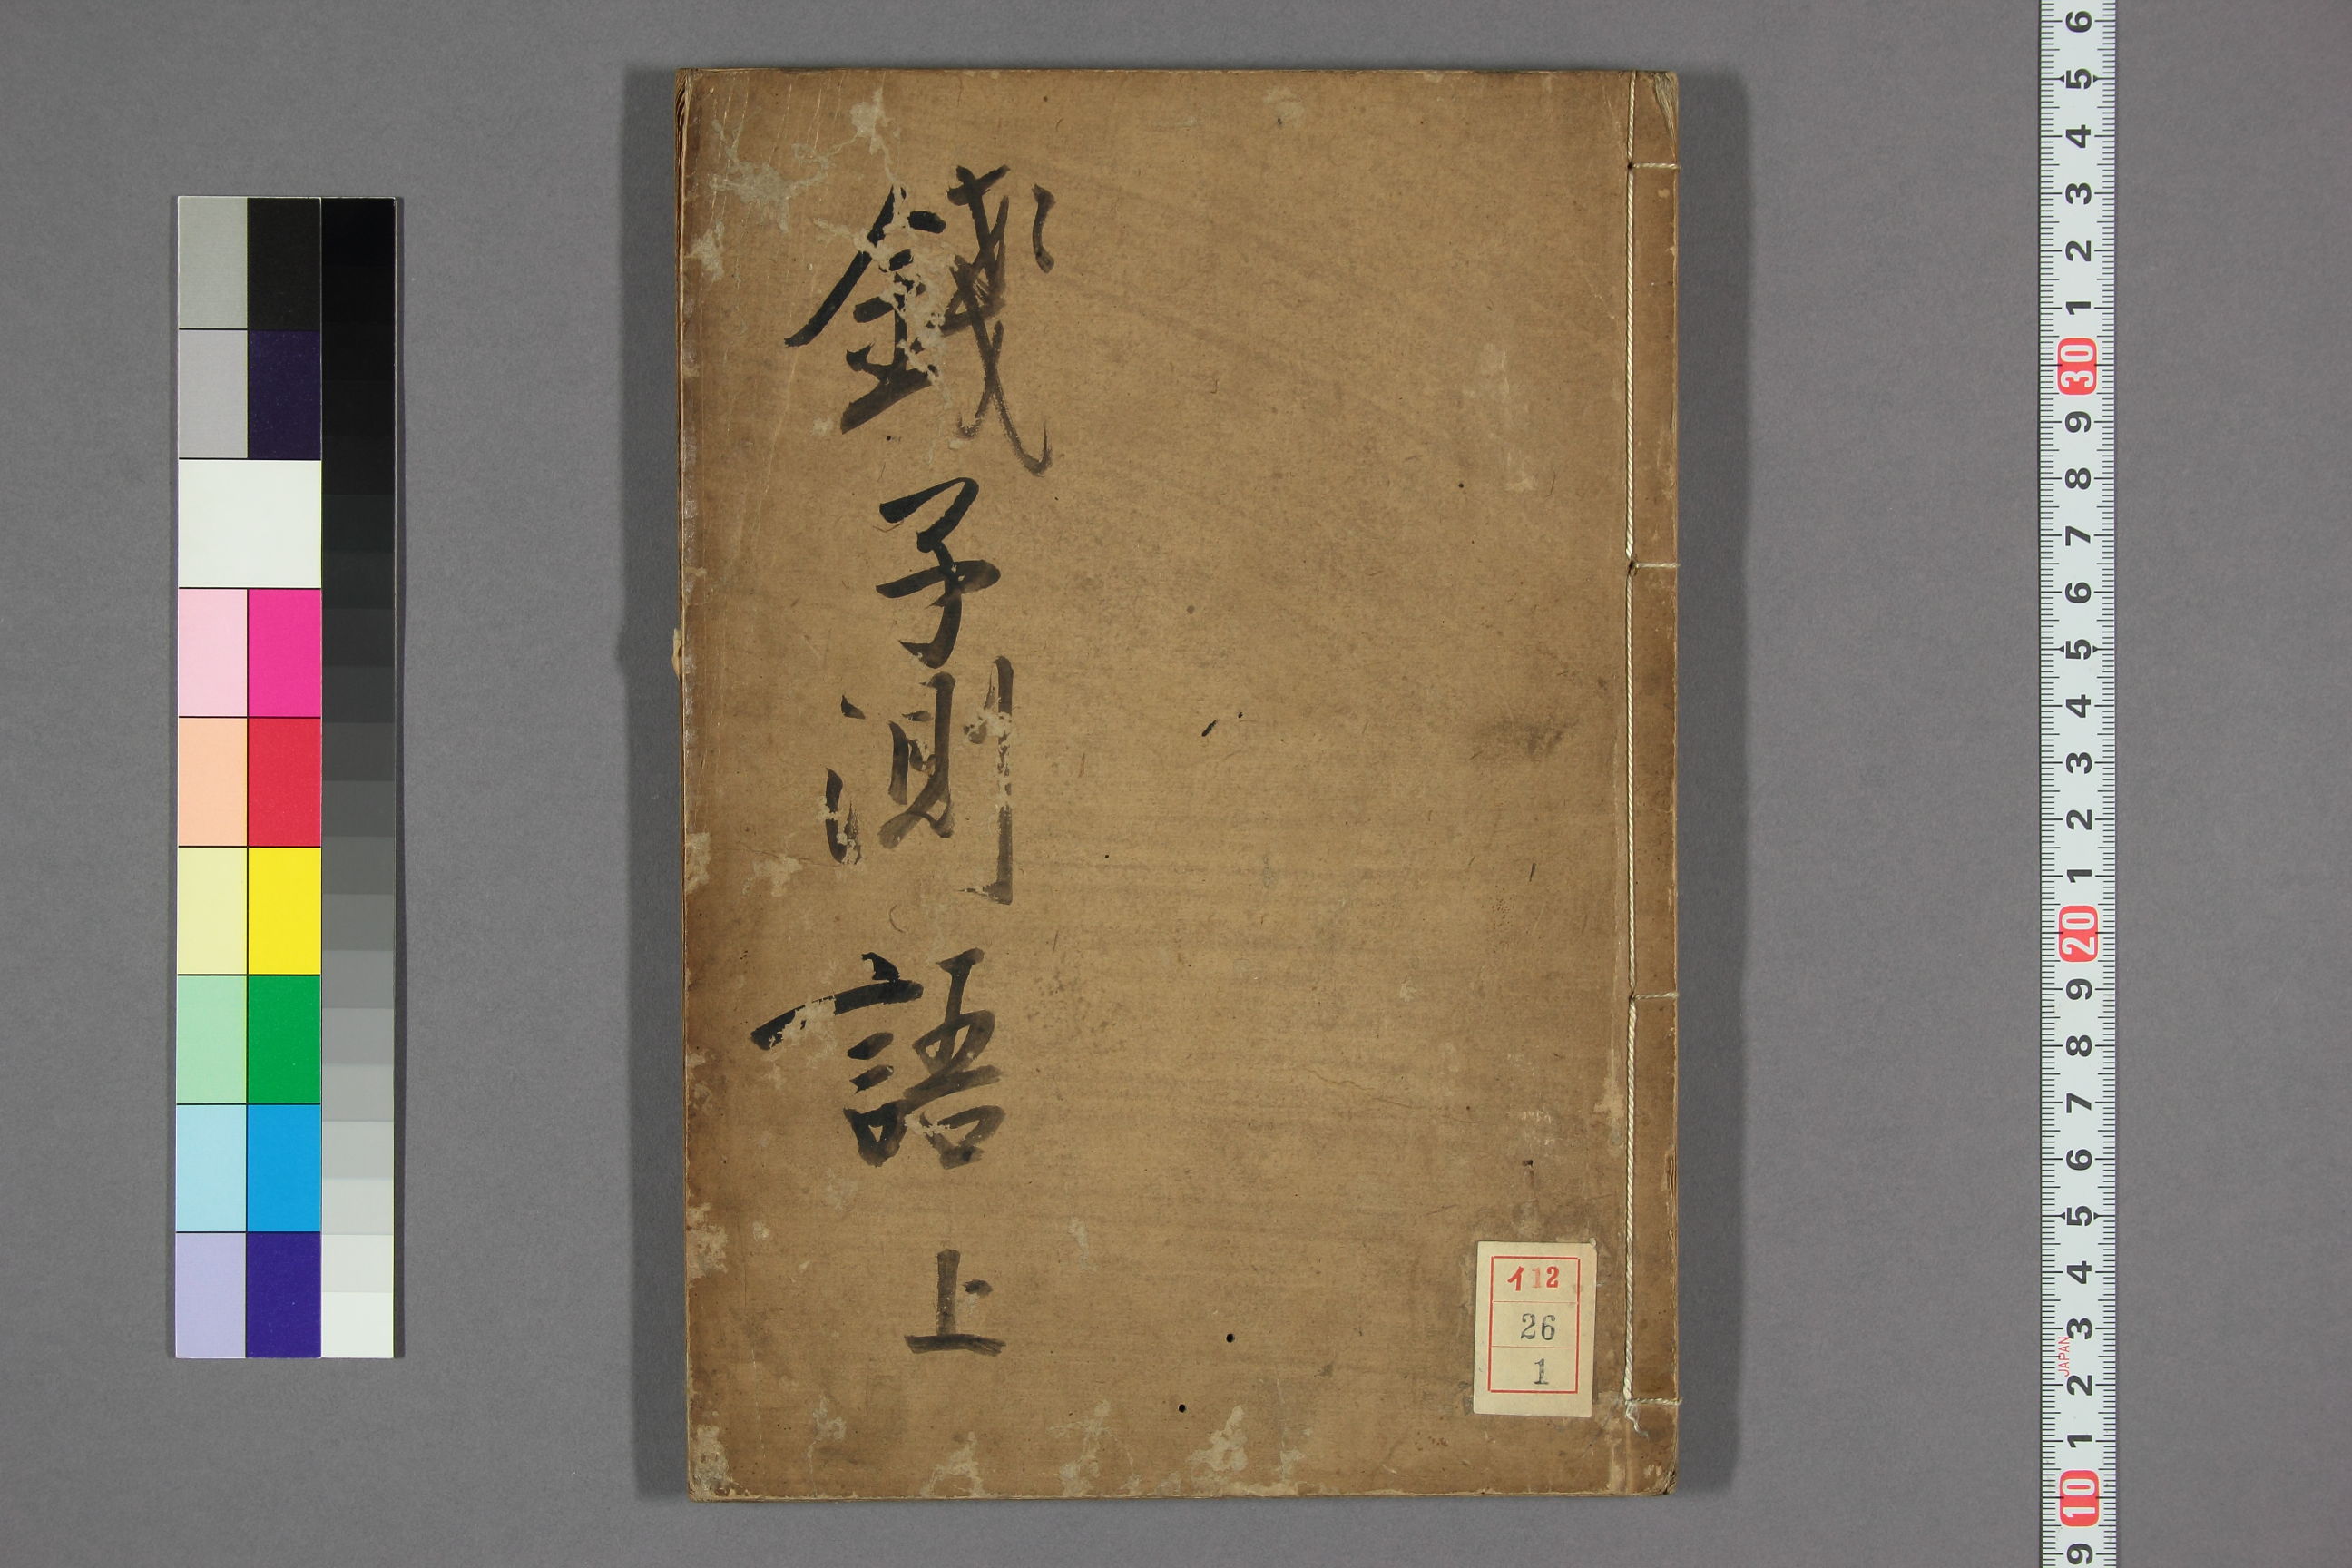 錢子測語 上
イ12
26
1
6
5
4
3
2
1
30
9
8
7
6
5
4
3
2
1
20
9
8
7
6
5
4
3
JAPAN
2
1
10
9